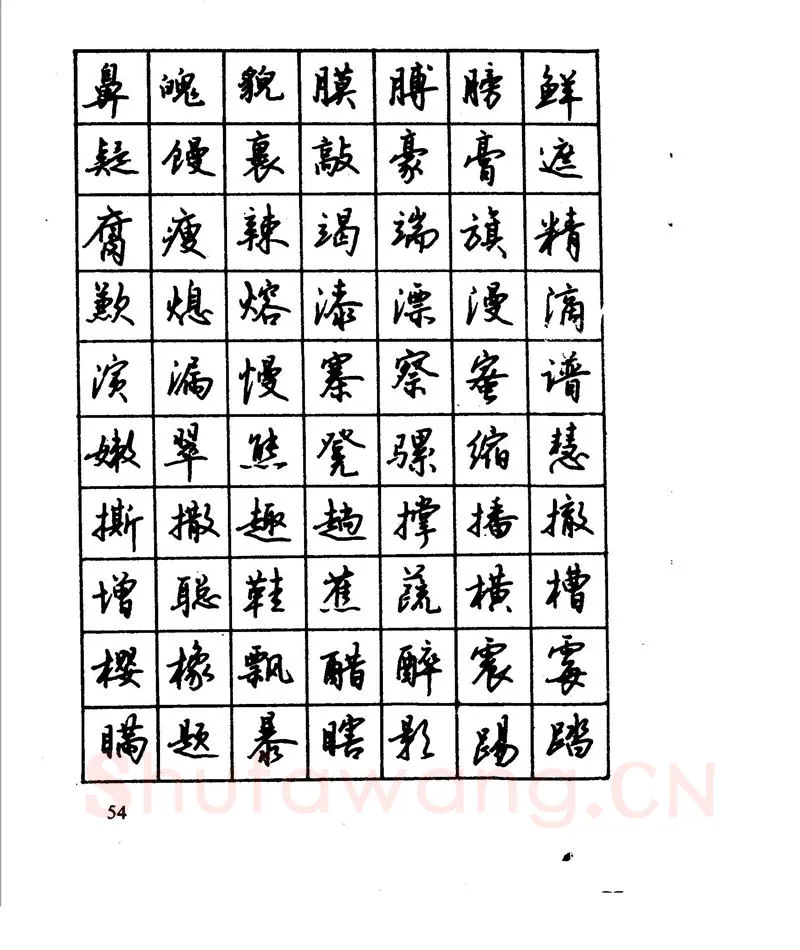 鼻魄貌膜膊膀鲜
疑馒裹敲豪膏遮
腐瘦辣竭端旗精
歉熄熔漆漂漫滴
演漏慢寨察蜜谱
嫩翠熊凳骡缩慧
撕撒趣趟撑播撤
增聪鞋蕉蔬横槽
樱橡飘醋醉震霉
瞒题暴瞎影踢踏
54
Shufawang.CN